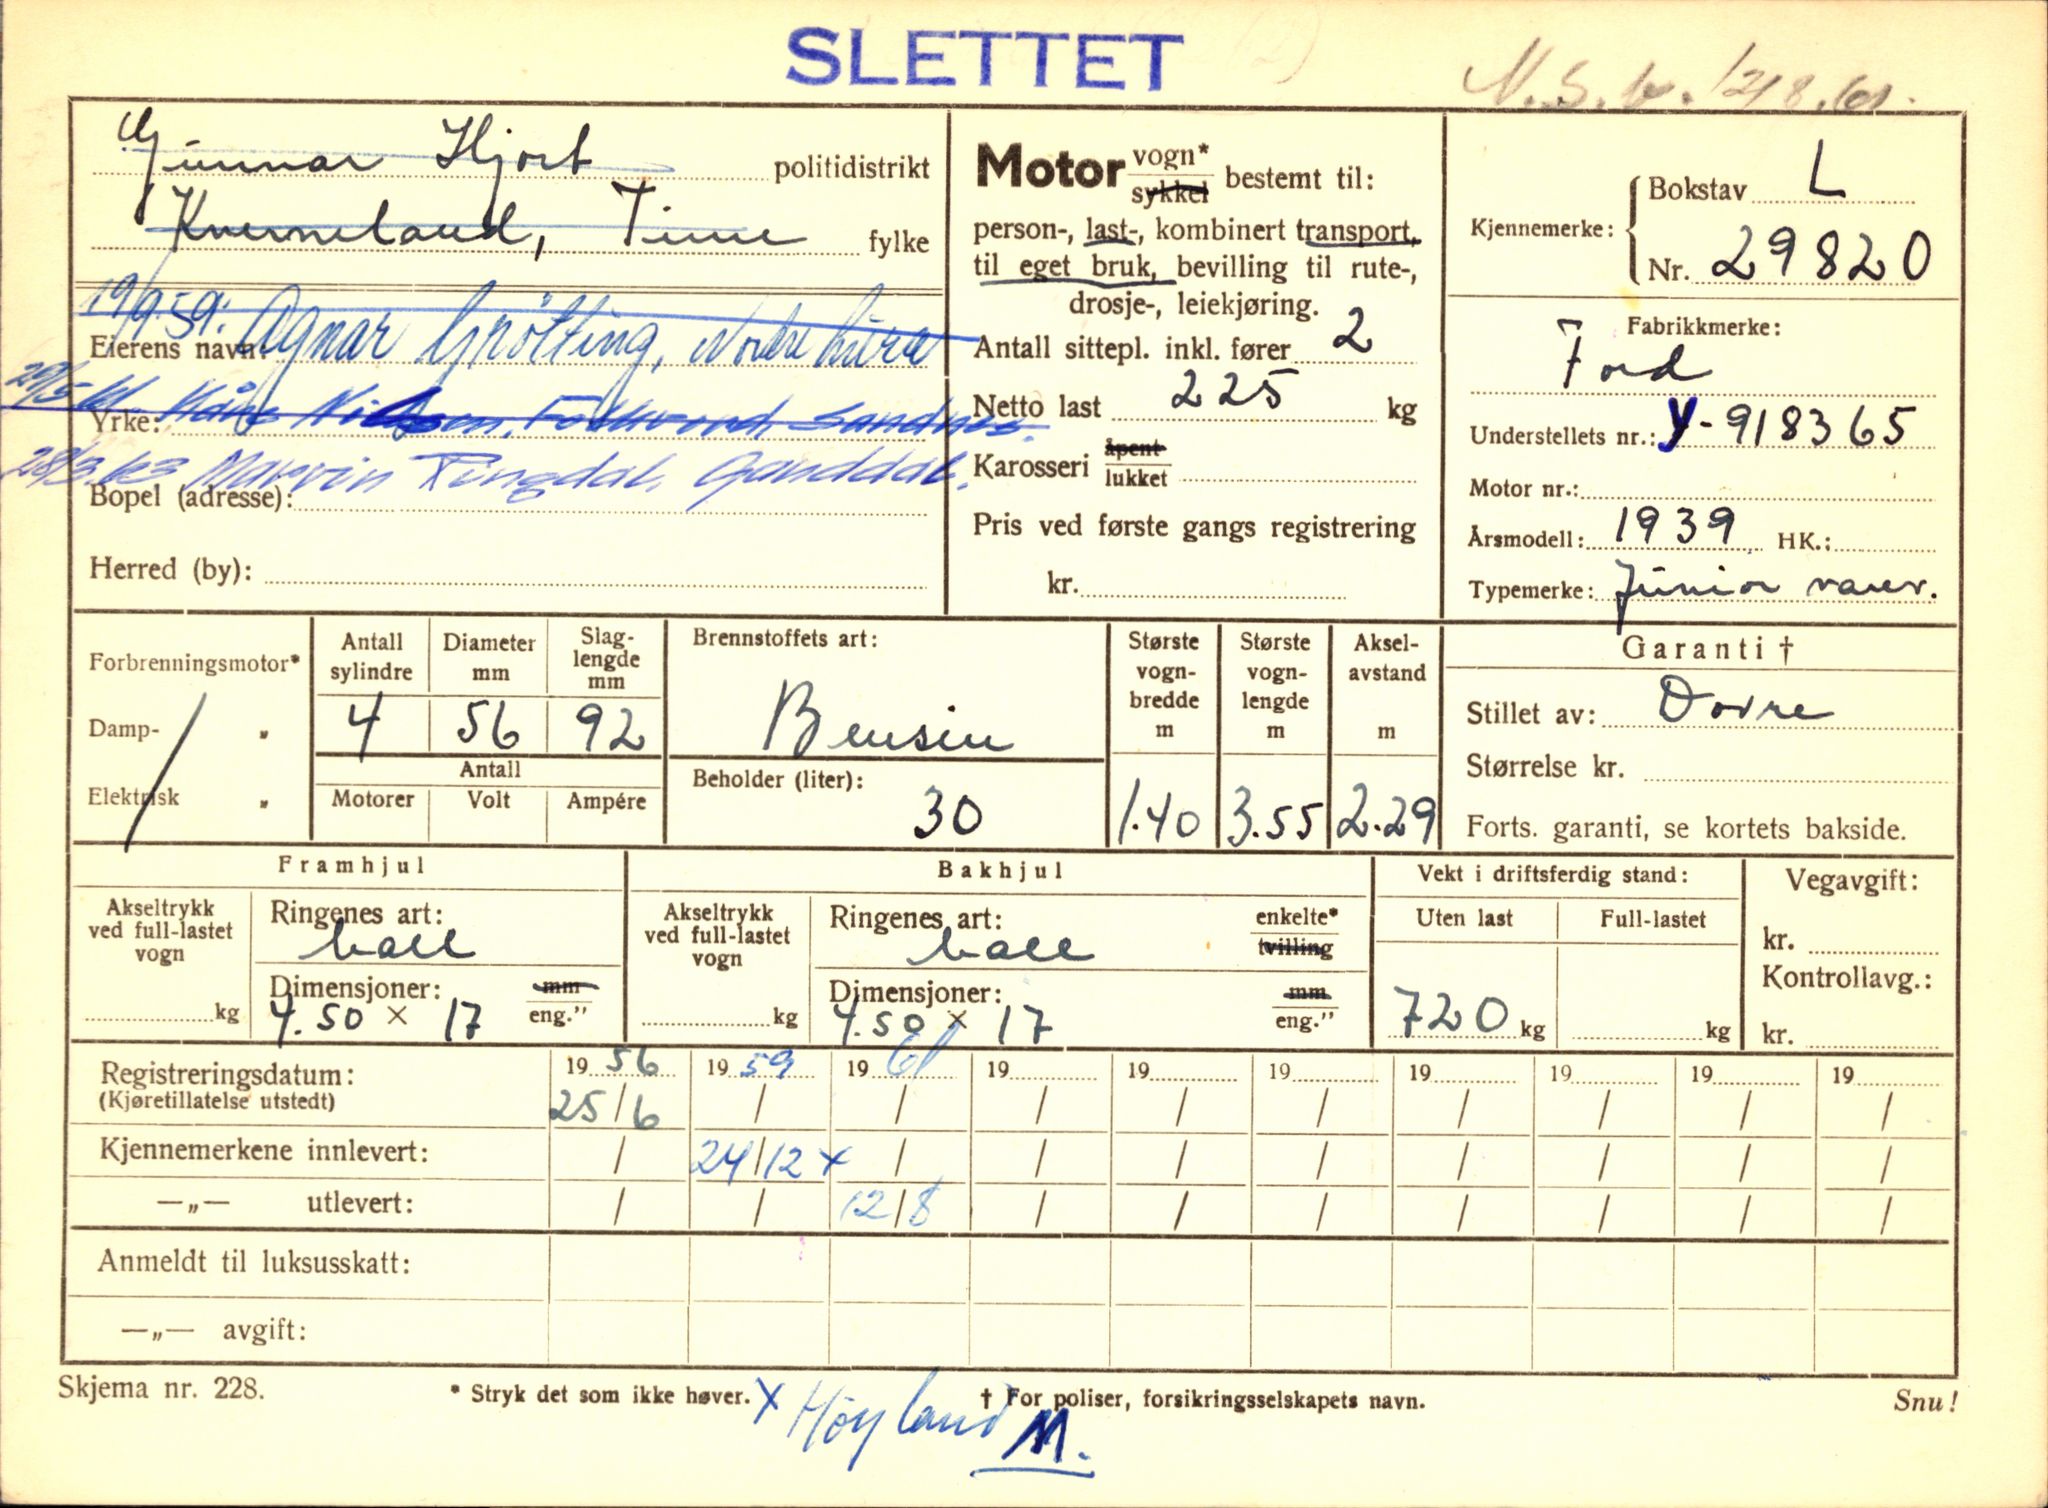 SLETTET
N.S.v. 12/8.61.
Gunnar Hjort politidistrikt
Kverneland, Time fylke
19/9.59: Agnar Grötting, Nordre
Eierens navn:
Nilsen, Folkvord, Sandnes.
Yrke:
28/3.63 Marvin Ringdal, Ganddal.
Bopel (adresse):
Herred (by):
Motor vogn* sykkel bestemt til:
person-, last-, kombinert transport,
til eget bruk, bevilling til rute-,
drosje-, leiekjøring.
Antall sittepl. inkl. fører 2
Netto last 225 kg
Karosseri åpent lukket
Pris ved første gangs registrering
kr.
Kjennemerke: Bokstav L
Nr. 29820
Fabrikkmerke:
Ford
Understellets nr.: Y-918365
Motor nr.:
Årsmodell: 1939 HK.:
Typemerke: Junior varev.
Forbrenningsmotor*
Damp- „
Elektrisk „
Antall sylindre Diameter mm Slaglengde mm
4 56 92
Antall
Motorer Volt Ampére
Brennstoffets art:
Bensin
Beholder (liter):
30
Største vognbredde m Største vognlengde m Akselavstand m
1.40 3.55 2.29
Garanti †
Stillet av: Dovre
Størrelse kr.
Forts. garanti, se kortets bakside.
Framhjul
Akseltrykk ved full-lastet vogn
kg
Ringenes art:
ball
Dimensjoner: mm eng."
4.50 × 17
Bakhjul
Akseltrykk ved full-lastet vogn
kg
Ringenes art: enkelte* tvilling
ball
Dimensjoner: mm eng."
4.50 × 17
Vekt i driftsferdig stand:
Uten last Full-lastet
720 kg kg
Vegavgift:
kr.
Kontrollavg.:
kr.
Registreringsdatum: 19 56 19 59 19 61 19 19 19 19 19 19 19
(Kjøretillatelse utstedt) 25/6 / / / / / / / / /
Kjennemerkene innlevert: / 24/12 x / / / / / / / /
—„— utlevert: / / 12/8 / / / / / / /
Anmeldt til luksusskatt:
—„— avgift:
Skjema nr. 228. * Stryk det som ikke høver. x Høyland M. † For poliser, forsikringsselskapets navn. Snu!